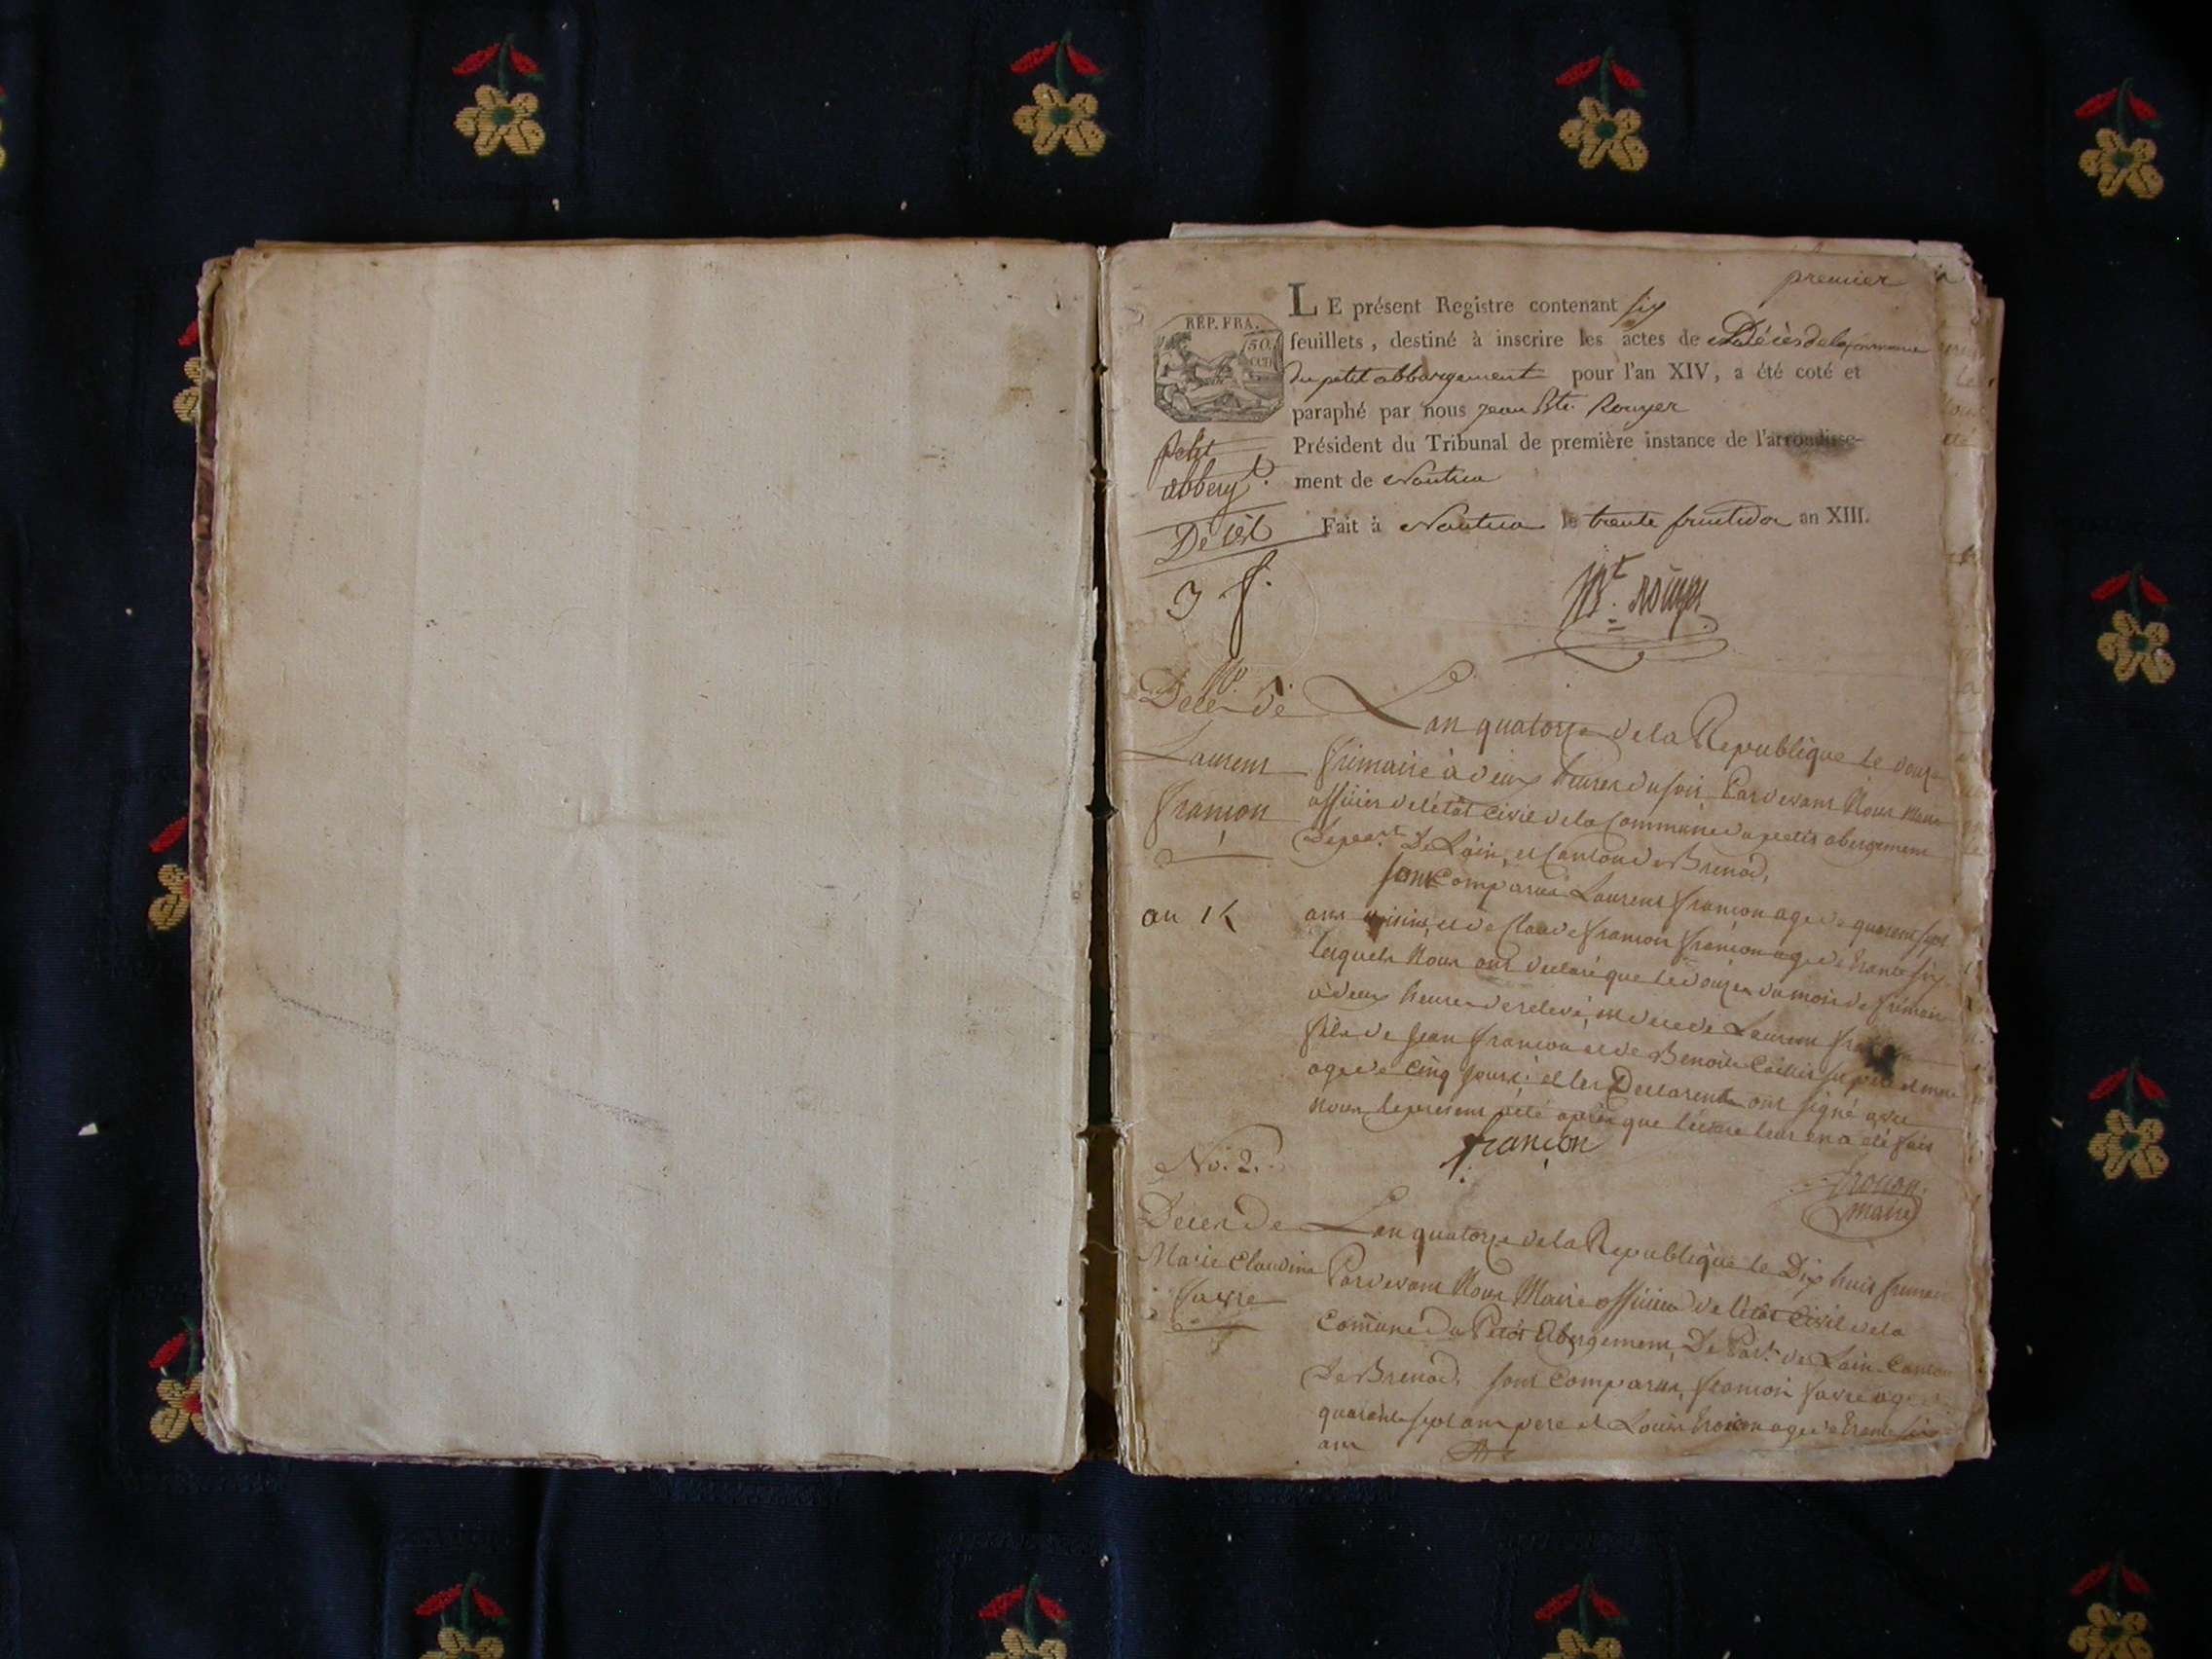 premier
LE présent Registre contenant six
feuillets, destiné à inscrire les actes de Décès de la commune
du petit abbergement pour l'an XIV, a été coté et
paraphé par nous Jean Bte. Rouyer
Président du Tribunal de première instance de l'arrondisse-
ment de Nantua
Fait à Nantua le trente fructidor an XIII.
REP. FRA.
50.
CEN
petit
abbergt.
Décès
3 f.
Bt. Rouyer
No. 1.
Deces de
Laurens
françon
an 14
Lan quatorze de la Republique le douze
frimaire à deux heures du soir Pardevant Nous Maire
officier de l'état Civil de la Commune du petit abergement
Depart. De Lain, et Canton de Brenod,
sont Comparus Laurent françon age de quarente sept
ans voisin, et de Claude françois françon age de trante six
lesquels Nous ont declaré que le douze du mois de frimaire
à deux heures de relevé, est decede Laurent
fils de Jean françon et de Benoite Caillier ses pere et mere
age de cinq jours; et les Declarents ont signé avec
nous le present acte après que lecture leur en a été fait
françon
maire
No. 2.
Deces de
Marie Claudine
favre
Lan quatorze de la Republique le Dix huit frimaire
Pardevant Nous Maire officier de l'état Civil de la
Comune Du Petit Abergement, De Part. de Lain Canton
De Brenod, sont Comparus, françois favre age de
quarante sept ans pere et Louis age de trante six
ans